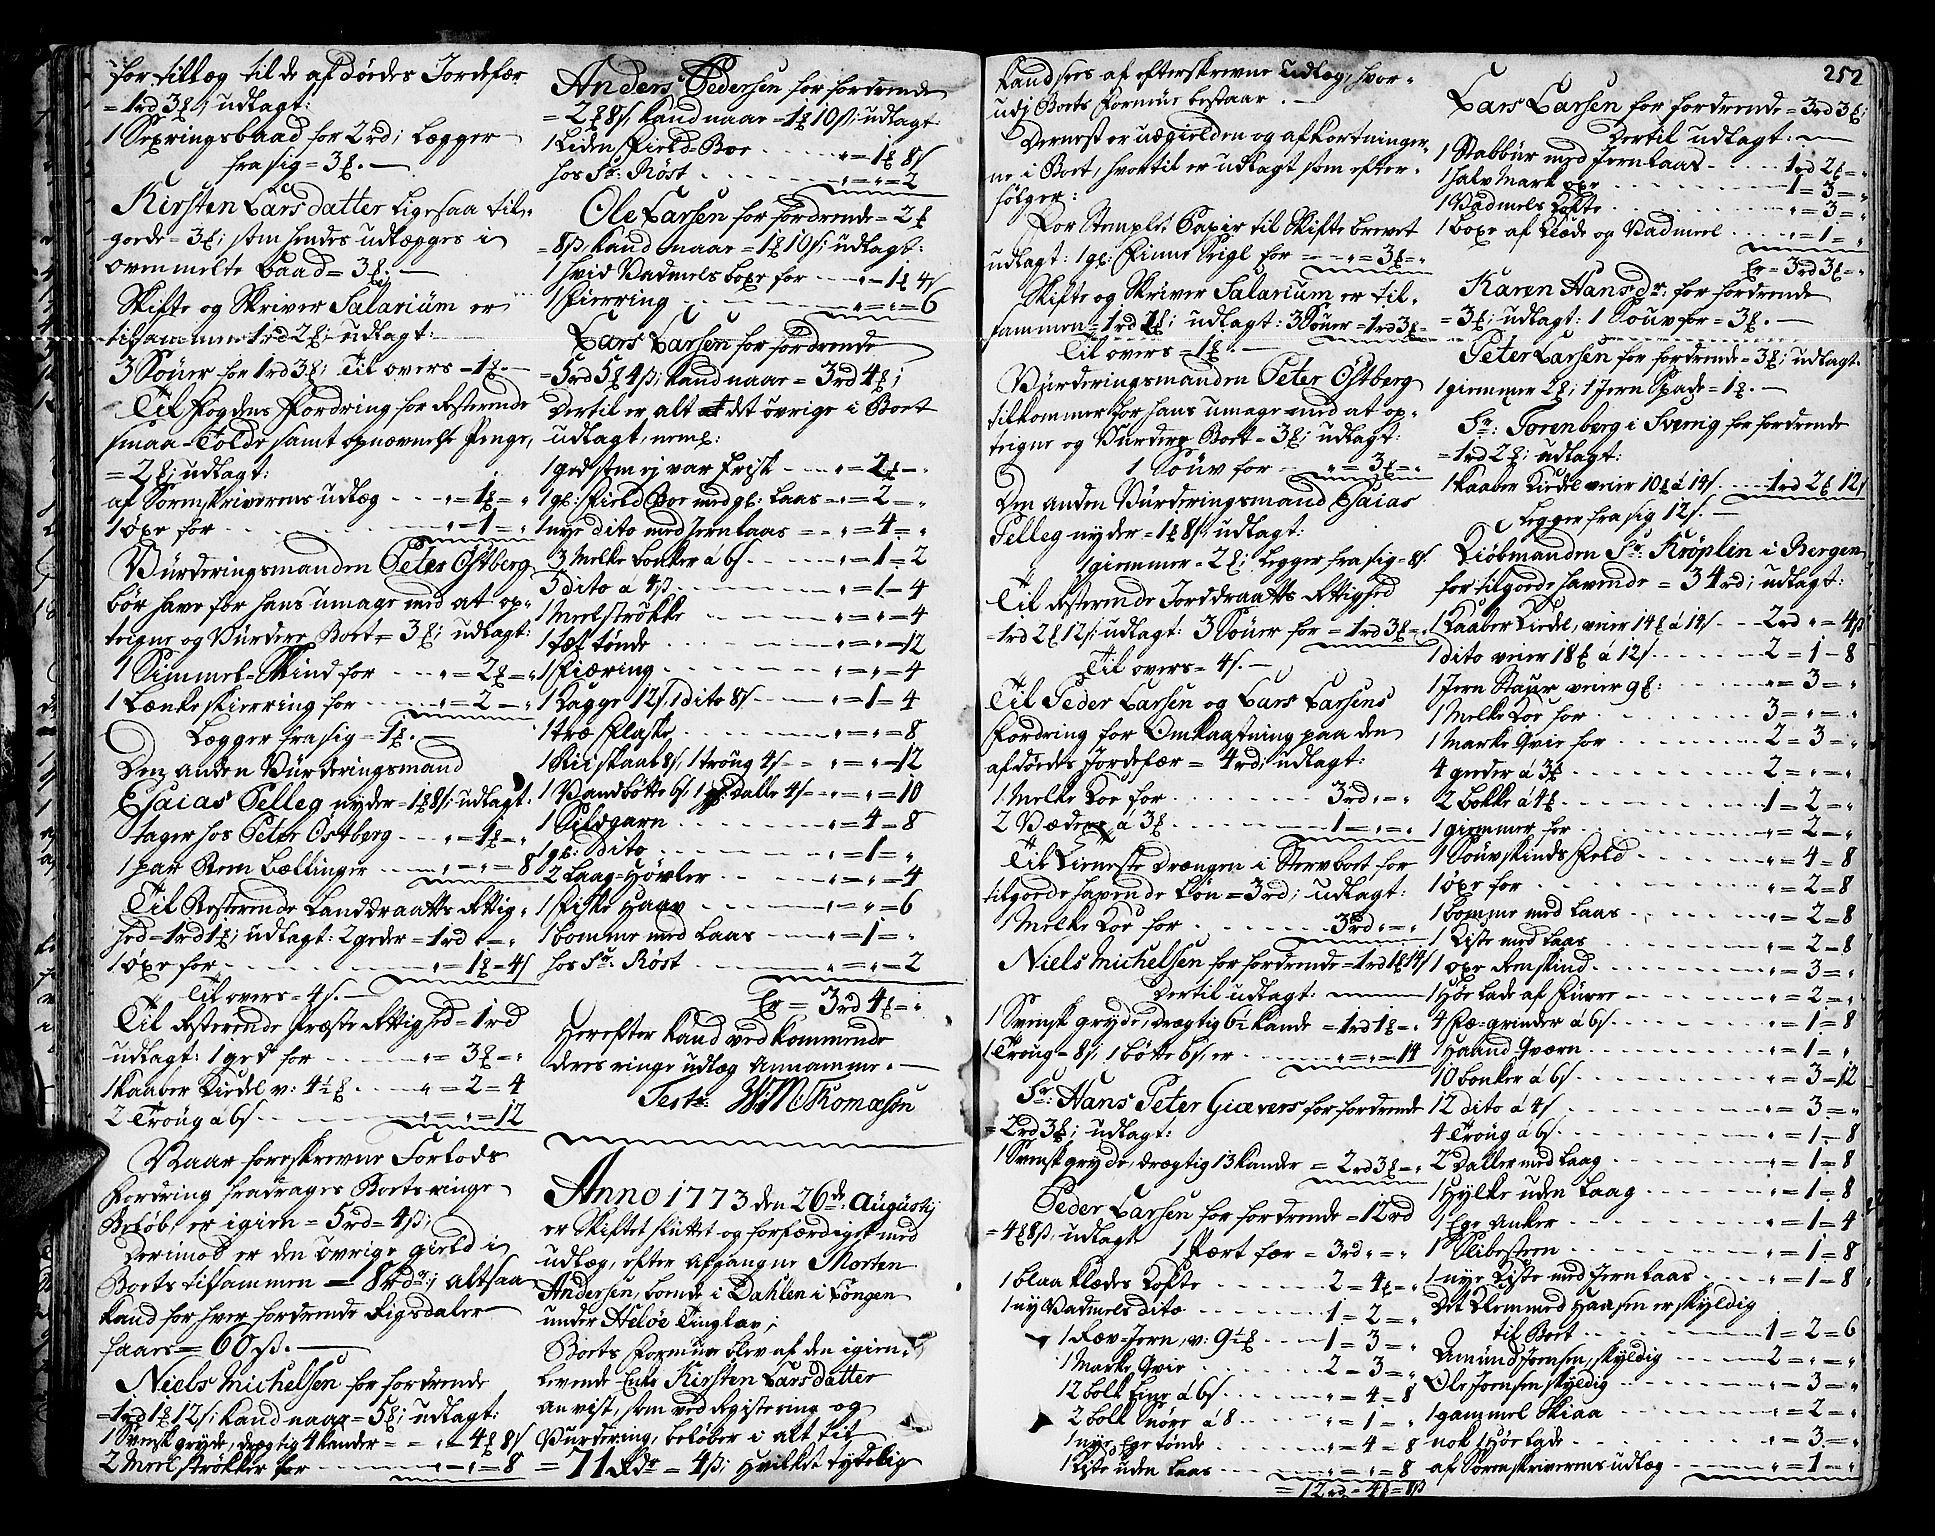 for tillæg til de afdødes Jordefær
=1rd 3ꝑ; udlagt:
1 Sexringsbaad for 2rd; Legger
fra sig=3ꝑ.
Kirsten Larsdatter Ligesaa til-
gode=3ꝑ; som hendes udlægges i
ovenmelte baad=3ꝑ.
Skifte og Skriver Salarium er
tilsammen 1rd 2ꝑ; udlagt:
3 Souer for 1rd 3ꝑ; Til overs=1ꝑ.
Til Fogdens Fordring for Resterende
smaa-Tolde samt opnævnelse Penge,
=2ꝑ; udlagt:
af Sorenskriverens udlæg "=1ꝑ="
1 öxe for "=1="
Vurderingsmanden Peter Östberg
bör have for hans umage med at op-
teigne og Vurdere Boet=3ꝑ; udlagt:
1 Simmel-Skind for "=2ꝑ="
1 Lænkeskierring for "=2="
Legger fra sig=1ꝑ.
Den anden Vurderingsmand
Esaias Pelleg nyder=1ꝑ 8s; udlagt:
tager hos Peter Östberg "=1ꝑ="
1 par Rem Bellinger "="=8
Til Resterende Landdraatts Rettig-
hed=1rd 1ꝑ; udlagt: 2 geder=1rd "="
1 öxe for "=1ꝑ=4s
Til overs=4s.
Til Resterende Præste Rettighed=1rd
udlagt: 1 ged for "=3ꝑ="
1 kaaber Kiedel v: 4½ꝑ "=2=4
2 Troug a 6s "="=12
Naar foreskrevne Forlods
Fordring fradrages Boets ringe
Beløb, er igien=5rd=4s;
Derimod er den övrige gield i
Boets tilsammen=8rdr; altsaa
kand for hver fordrende Rigsdaler
faaes=60s.
Niels Michelsen for fordrende
=1rd 1ꝑ 12s; kand naae=5ꝑ; udlagt:
1 Svensk gryde, drægtig 4 kander="=4ꝑ 8s
2 Meelströkker for "="=8
Anders Pedersen for fordrende
=2ꝑ 8s, kand naae=1ꝑ 10s; udlagt
1 Liden Field-Boe "=1ꝑ 8s
hos Sr: Röst "="=2
Ole Larsen for fordrende=2ꝑ
=8s, kand naae=1ꝑ 10s; udlagt:
1 hvid Vadmels boxe for "=1ꝑ 4s
1 fierring "="=6
Lars Larsen for fordrende
=5rd 5ꝑ 4s; kand naae=3rd 4ꝑ;
Dertil er alt det övrige i Boet
udlagt, neml:
1 ged som ej var frisk "=2ꝑ="
1 gl: Field Boe med gl: laas "=2="
1 nye dito med Jernlaas "=4="
3 Melke bonker á 6s "=1=2
5 dito á 4s "=1=4
1 Meelströkke "="=4
1 fæt tönde "="=12
1 fiæring "="=4
1 Kagge 12s, 1 dito 8s "=1=4
1 træ flaske "="=8
1 Riiskaab 8s, 1 troug 4s "="=12
1 Vandbötte 6s, 1 gl: dalle 4s "="=10
1 Sildgarn "=4=8
1 gl: dito "=1="
2 laag-Hövler "="=4
1 fiske Haav "="=6
1 bomme med laas "=1="
hos Sr: Röst "="=2
Er=3rd 4ꝑ="
Herefter kand ved kommende
deres ringe udlæg annamme.
Test: WM: Thomesen
Anno 1773 den 26de Augustij
er Skiftet sluttet og forfærdiget med
udlæg, efter Afgangne Morten
Andersen, boende i Dahlen i Töngen
under Helöe Tinglav;
Boets Formue blev af den igien-
levende Enke Kirsten Larsdatter
anvist, som ved Registering og
Vurdering, belöber i alt til
=71 Rdr=4s; hvilket tydelig
252
kand sees af efterskrevne udlæg, hvor-
udj Boets Formue bestaar.
Dernest er uægielden og afkortninger-
ne i Boet, hvortil er udlagt som efter-
fölger:
For Stemplt Papir til Skifte brevet
udlagt: 1 gl: Finne Seigl for "=3ꝑ="
Skifte og Skriver Salarium er til-
sammen=1rd 2ꝑ; udlagt: 3 Souer=1rd 3ꝑ="
Til overs=1ꝑ.
Vurderingsmanden Peter Östberg
tilkommer for hans umage med at op-
teigne og Vurdere Boet=3ꝑ; udlagt:
1 Souv for "=3ꝑ="
Den anden Vurderingsmand Esaias
Pelleg nyder=1ꝑ 8s; udlagt:
1 giemmer=2ꝑ; Legger fra sig=8s.
Til Resterende Jorddraatts Rettighed
=1rd 2ꝑ 12s; udlagt: 3 Souer for=1rd 3ꝑ="
Til overs=4s.
Til Peder Larsen og Lars Larsens
Fordring for Omkaastning paa den
afdödes Jordefær=4rd; udlagt:
1 Melke koe for 3rd "="
2 Vædere á 3ꝑ 1="="
Til Tieneste drængen i Stervboet for
tilgode havende Lön=3rd; udlagt:
1 Melke koe for 3rd "="
Niels Michelsen for fordrende=1rd 1ꝑ 14s
Dertil udlagt:
1 Svensk gryde, drægtig 6½ kande=1rd 1ꝑ="
1 Troug=8s, 1 bötte 6s, er "="=14
Sr: Hans Peter Giævers for fordrende
=2rd 3ꝑ; udlagt:
1 Svensk gryde, drægtig 13 kander=2rd 3ꝑ="
Peder Larsen for fordrende=12rd
=4ꝑ 8s, udlagt
1 Fært fær=3rd "="
1 blaa klædes Kofte 2=4ꝑ="
1 ny Vadmels dito 1=2="
1 Ræv-Jern, v: 9½ꝑ 1=3="
1 Marke Qvie 2=3="
12 bolk Line á 6s "=4=8
2 bolk Snöre á 8 "=1="
1 nye Ege tönde "=4=8
1 Kiste uden laas "="=8
=12rd=4ꝑ=8s
Lars Larsen for fordrende=3rd 3ꝑ;
Dertil udlagt:
1 Stabbur med Jernlaas 1rd 2ꝑ="
1 halv Mark öxe 1=3="
1 Vadmels Kofte "=3="
1 boxe af klæde og Vadmel "=1="
Er=3rd 3ꝑ="
Karen Hansdr: for fordrende
=3ꝑ; udlagt: 1 Souv for=3ꝑ.
Peter Larsen for fordrende=3ꝑ; udlagt:
1 giemmer 2ꝑ; 1 Jern Spade=1ꝑ.
Sr: Torenberg i Sverrig for fordrende
=1rd 2ꝑ; udlagt:
1 kaaber Kiedel veier 10ꝑ á 14s 1rd 2ꝑ 12s
Legger fra sig 12s.
Kiöbmanden Sr: Kröplin i Bergen
for tilgode havende=34rd; udlagt:
1 Kaaber Kiedel, veier 14ꝑ á 14s 2rd "=4s
1 dito veier 18ꝑ á 12s 2=1=8
1 Jern Staur veier 9ꝑ: "=3="
1 Melke koe for 3="="
1 Marke Qvie for 2=3="
4 geder á 3ꝑ 2="="
2 bokke á 4ꝑ 1=2="
1 giemmer for "=2="
1 Souvskinds Feld "=4=8
1 öxe for "=2=8
1 bomme med laas "=2=8
1 Kiste med laas "=2=8
1 oxe Remskind "=3="
1 Höe lade af Furre "=2="
4 Fæ-grinder á 6s "=1=8
1 Haand Qværn "=1="
10 bonker á 6s "=3=12
12 dito á 4s "=3="
4 Troug á 6s "=1=8
2 Daller med laag "=1=8
1 Hylke uden laag "=1=8
1 Ege Anker "=1=4
1 Slibesteen "=1=8
1 nye Kiste med Jernlaas "=1=8
Det Klemmed Haasen er skyldig
til Boet 1=2=6
Amund Jonsen, skyldig 2="="
Ole Jonsen skyldig "=3="
1 gammel Skiaa "=2="
nok 1 Höelade "=3="
af Sorenskriverens udlæg "=1="